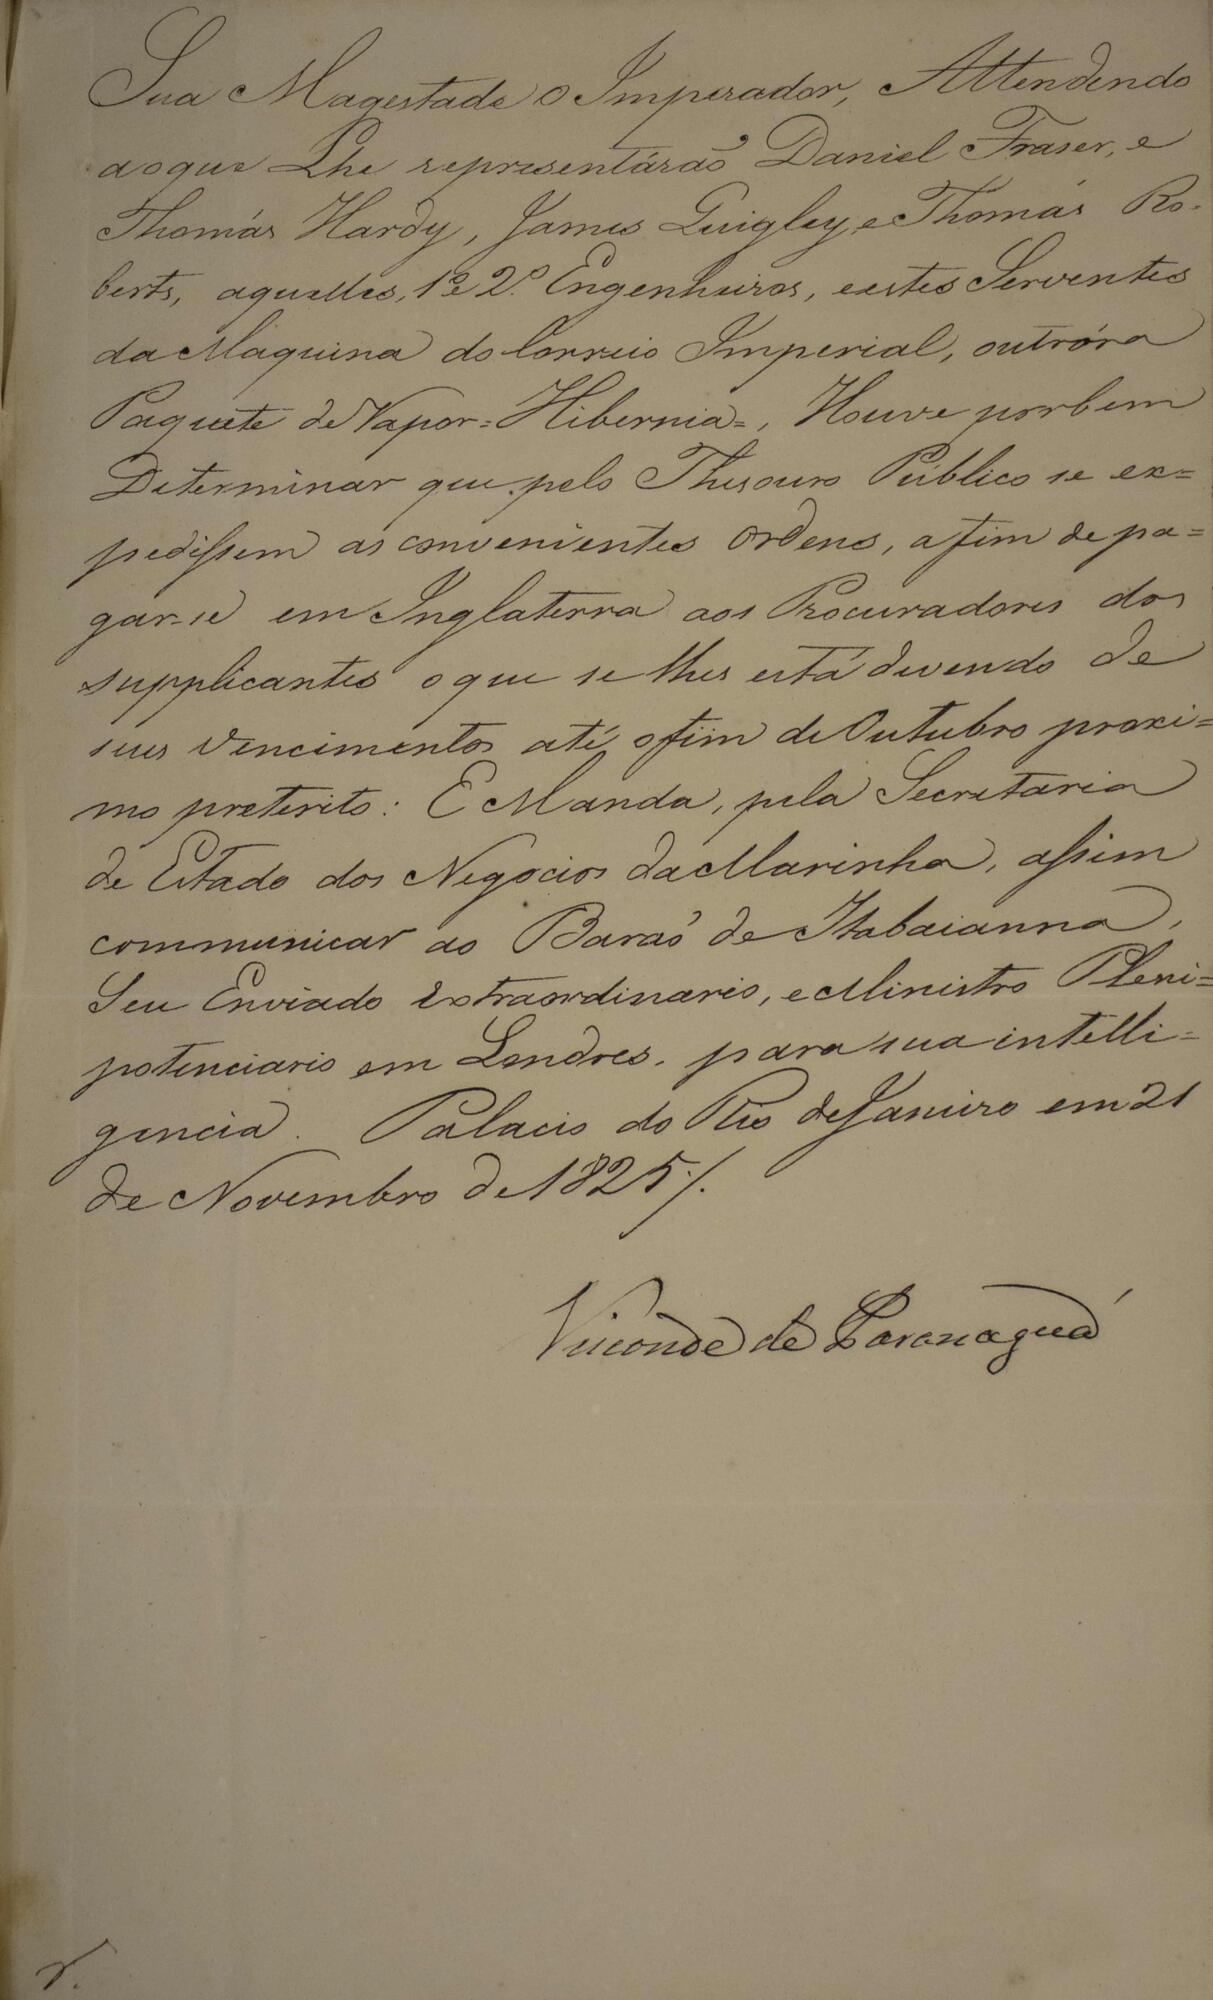 Sua Magestade o Imperador, Attendendo
aoque Lhe representárão Daniel Fraser, e
Thomás Hardy, James Quigley, e Thomás Ro-
berts, aquelles, 1º e 2.º Engenheiros, eestes Serventes
da Maquina do Correio Imperial, outróra
Paquete de Vapor = Hibernia =, Houve porbem
Determinar que pelo Thesouro Público se ex=
pedissem as convenientes ordens, afim de pa=
gar-se em Inglaterra aos Procuradores dos
supplicantes o que se lhes está devendo de
seus vencimentos até o fim de Outubro proxi=
mo preterito: E Manda, pela Secretaria
de Estado dos Negocios da Marinha, assim
communicar ao Barão de Itabaianna,
Seu Enviado Extraordinario, e Ministro Pleni=
potenciario em Londres, para sua intelli=
gencia. Palacio do Rio de Janeiro em 21
de Novembro de 1825 /.
Visconde de Paranaguá